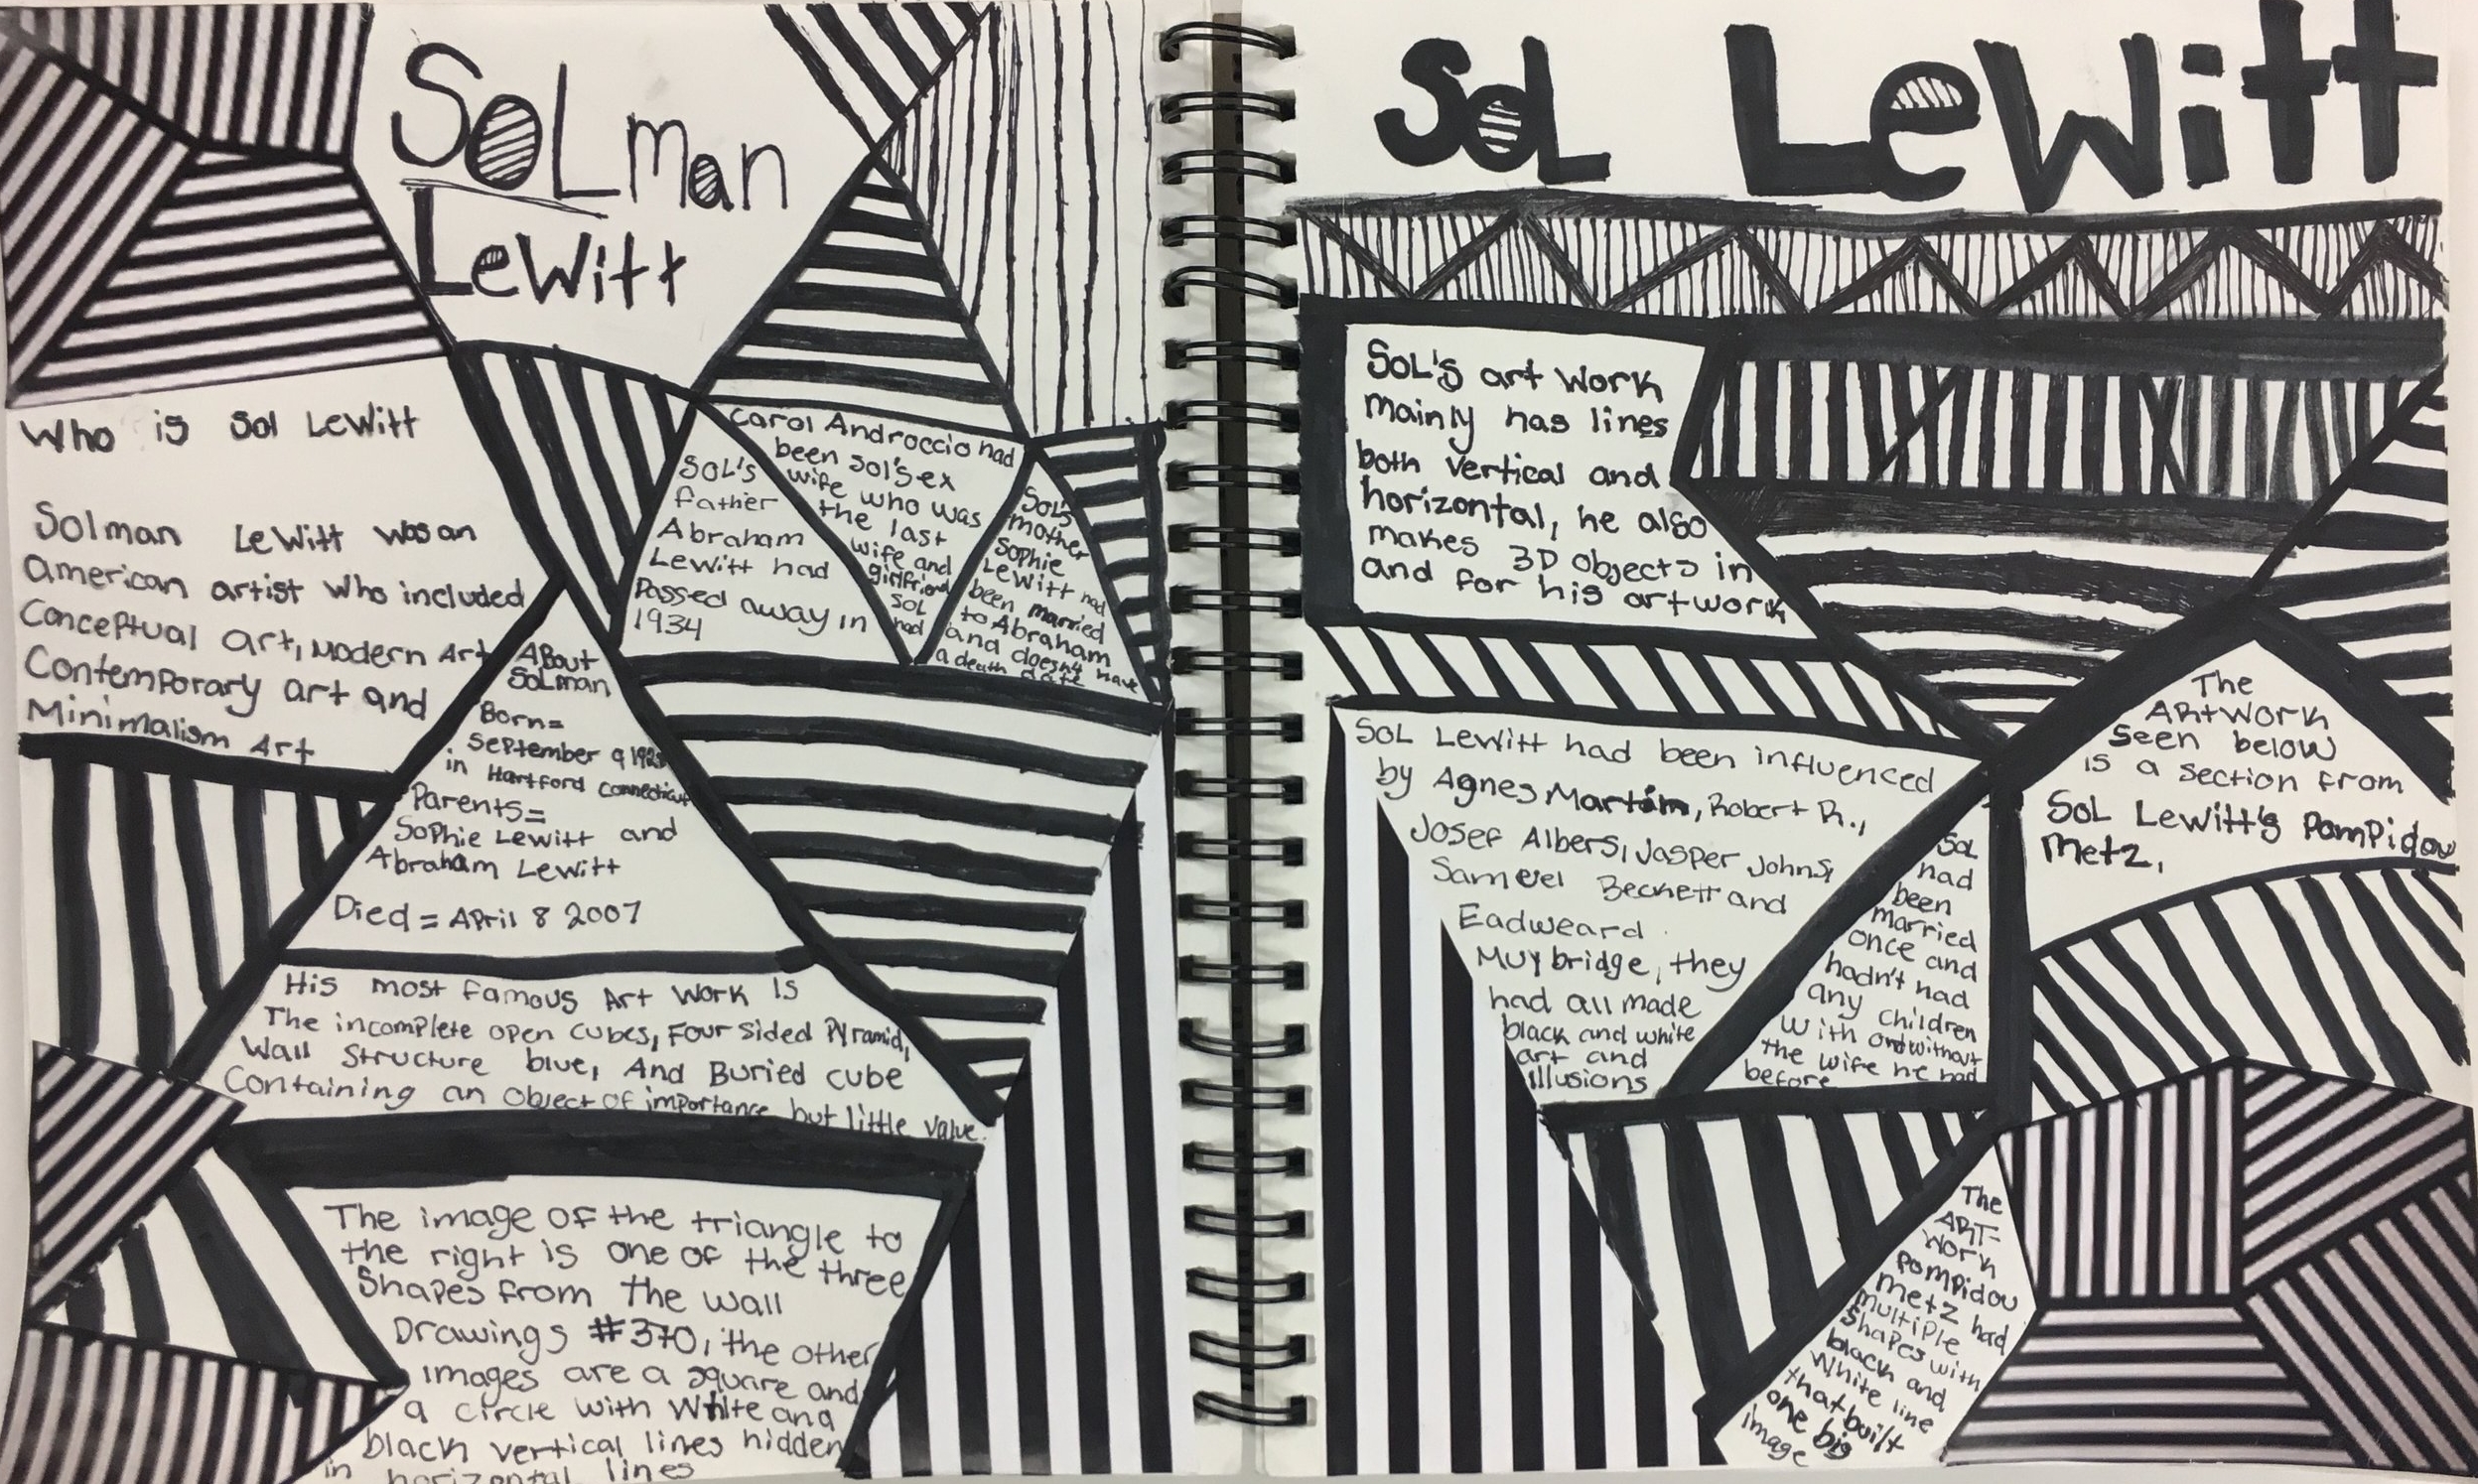 SOL man
LeWitt
Who is Sol LeWitt
Solman LeWitt was an
american artist who included
Conceptual art, Modern Art
Contemporary art and
Minimalism Art
Carol Androccio had
been Sol's ex
wife who was
the last
wife and
girlfriend
SOL
had
SOL's
father
Abraham
LeWitt had
Passed away in
1934
SOL's
mother
Sophie
LeWitt had
been married
to Abraham
and doesnt have
a death date
About
SOLman
Born=
September 9 1928
in Hartford Connecticut
Parents=
Sophie LeWitt and
Abraham LeWitt
Died = April 8 2007
His most famous Art Work Is
The incomplete open cubes, Four Sided Pyramid,
Wall Structure blue, And Buried cube
Containing an Object of importance but little value.
The image of the triangle to
the right is one of the three
Shapes from the Wall
Drawings #370, the other
images are a square and
a circle with White and
black vertical lines hidden
in horizontal lines
SoL LeWitt
SOL's art work
mainly has lines
both vertical and
horizontal, he also
makes 3D Objects in
and for his artwork
SOL LeWitt had been influenced
by Agnes Martin, Robert R.,
Josef Albers, Jasper Johns,
Samuel Beckett and
Eadweard
Muybridge, they
had all made
black and white
art and
illusions
SoL
had
been
married
once and
hadn't had
any children
with and without
the wife he had
before
The
ARtWork
Seen below
is a section from
SOL LeWitt's Pompidou
Metz.
The
ART-
Work
Pompidou
Metz had
multiple
Shapes with
black and
White line
that built
one big
image